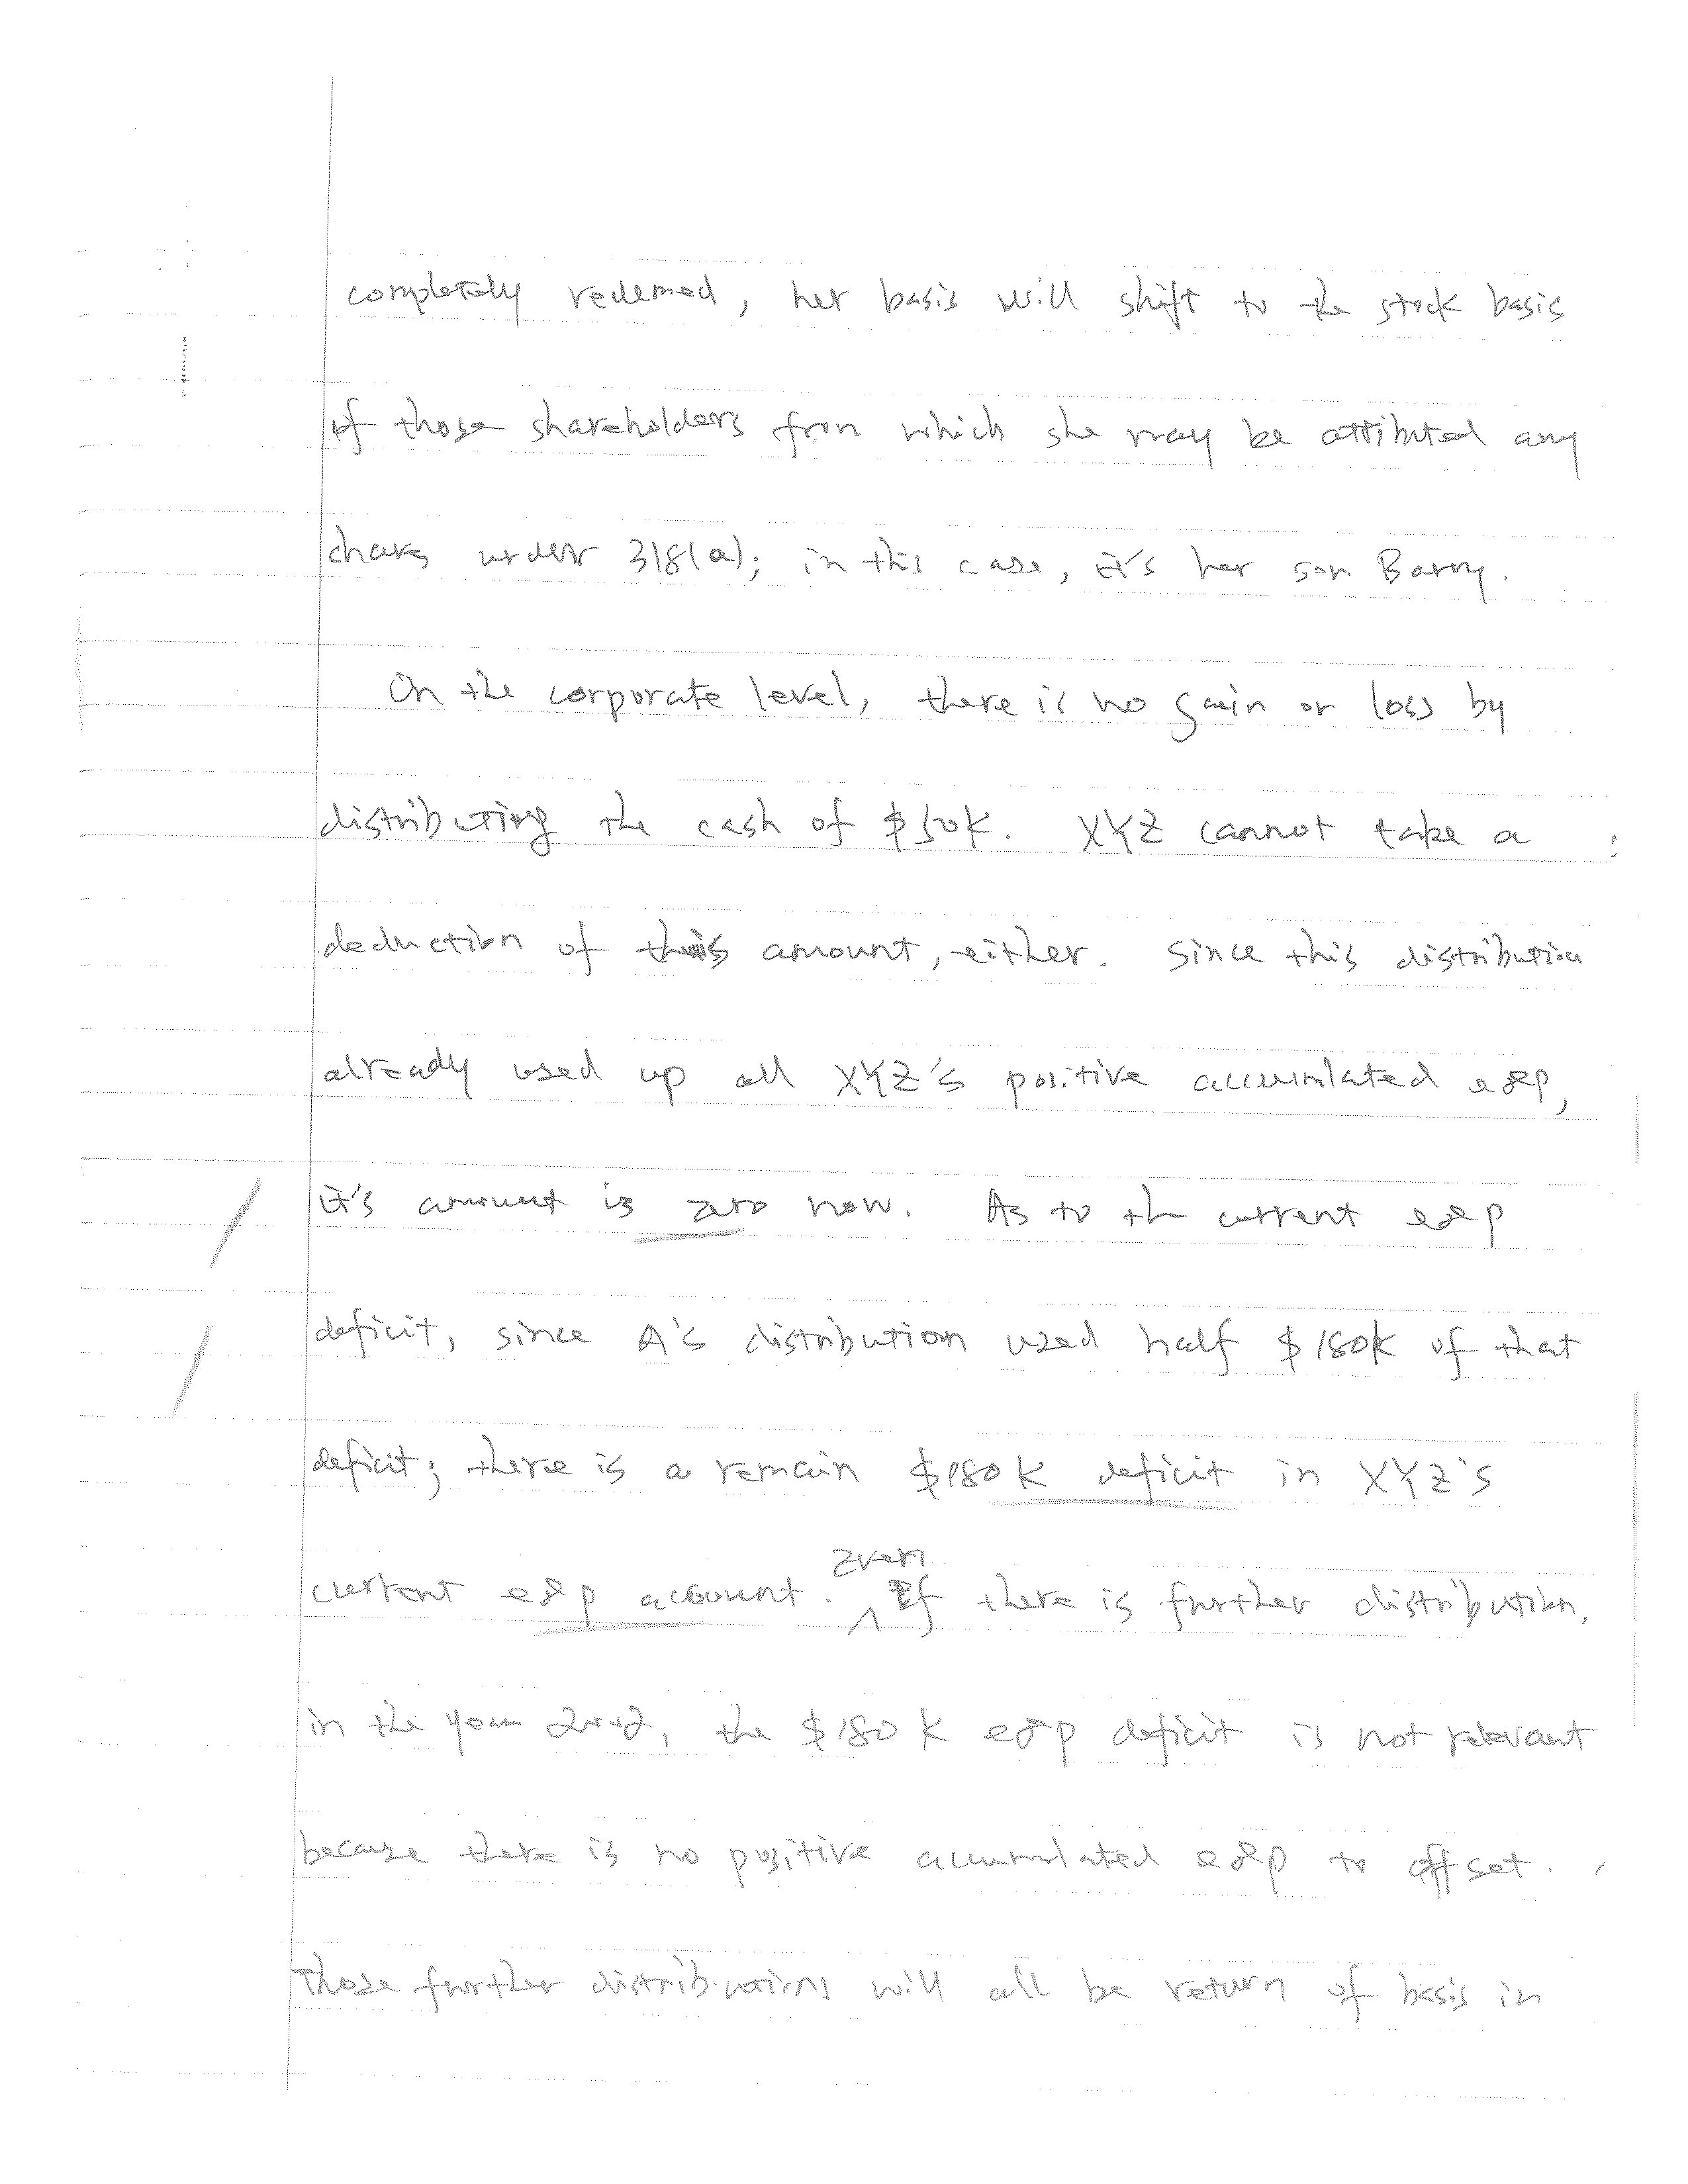 completely redeemed, her basis will shift to the stock basis
of those shareholders from which she may be attibuted any
under 318(a); in this case, it's her son Barry.
On the corporate level, there is no gain or loss by
distributing the cash of $50K. XYZ cannot take a
deduction of this amount, either. Since this distribution
already used up all XYZ's positive accumulated e&p,
it's amount is zero now. As to the current e&p
deficit, since A's distribution used half $180K of that
deficit; there is a remain $180K deficit in XYZ's
current e&p account. Even If there is further distribution,
in the year 2002, the $180K e&p deficit is not relevant
because there is no positive accumulated e&p to offset.
Those further distributions will all be return of basis in